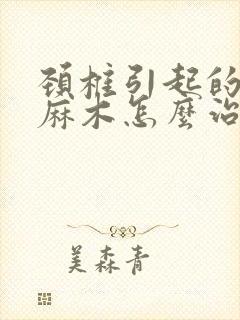 頚椎引起的
麻木怎麼治
美森青